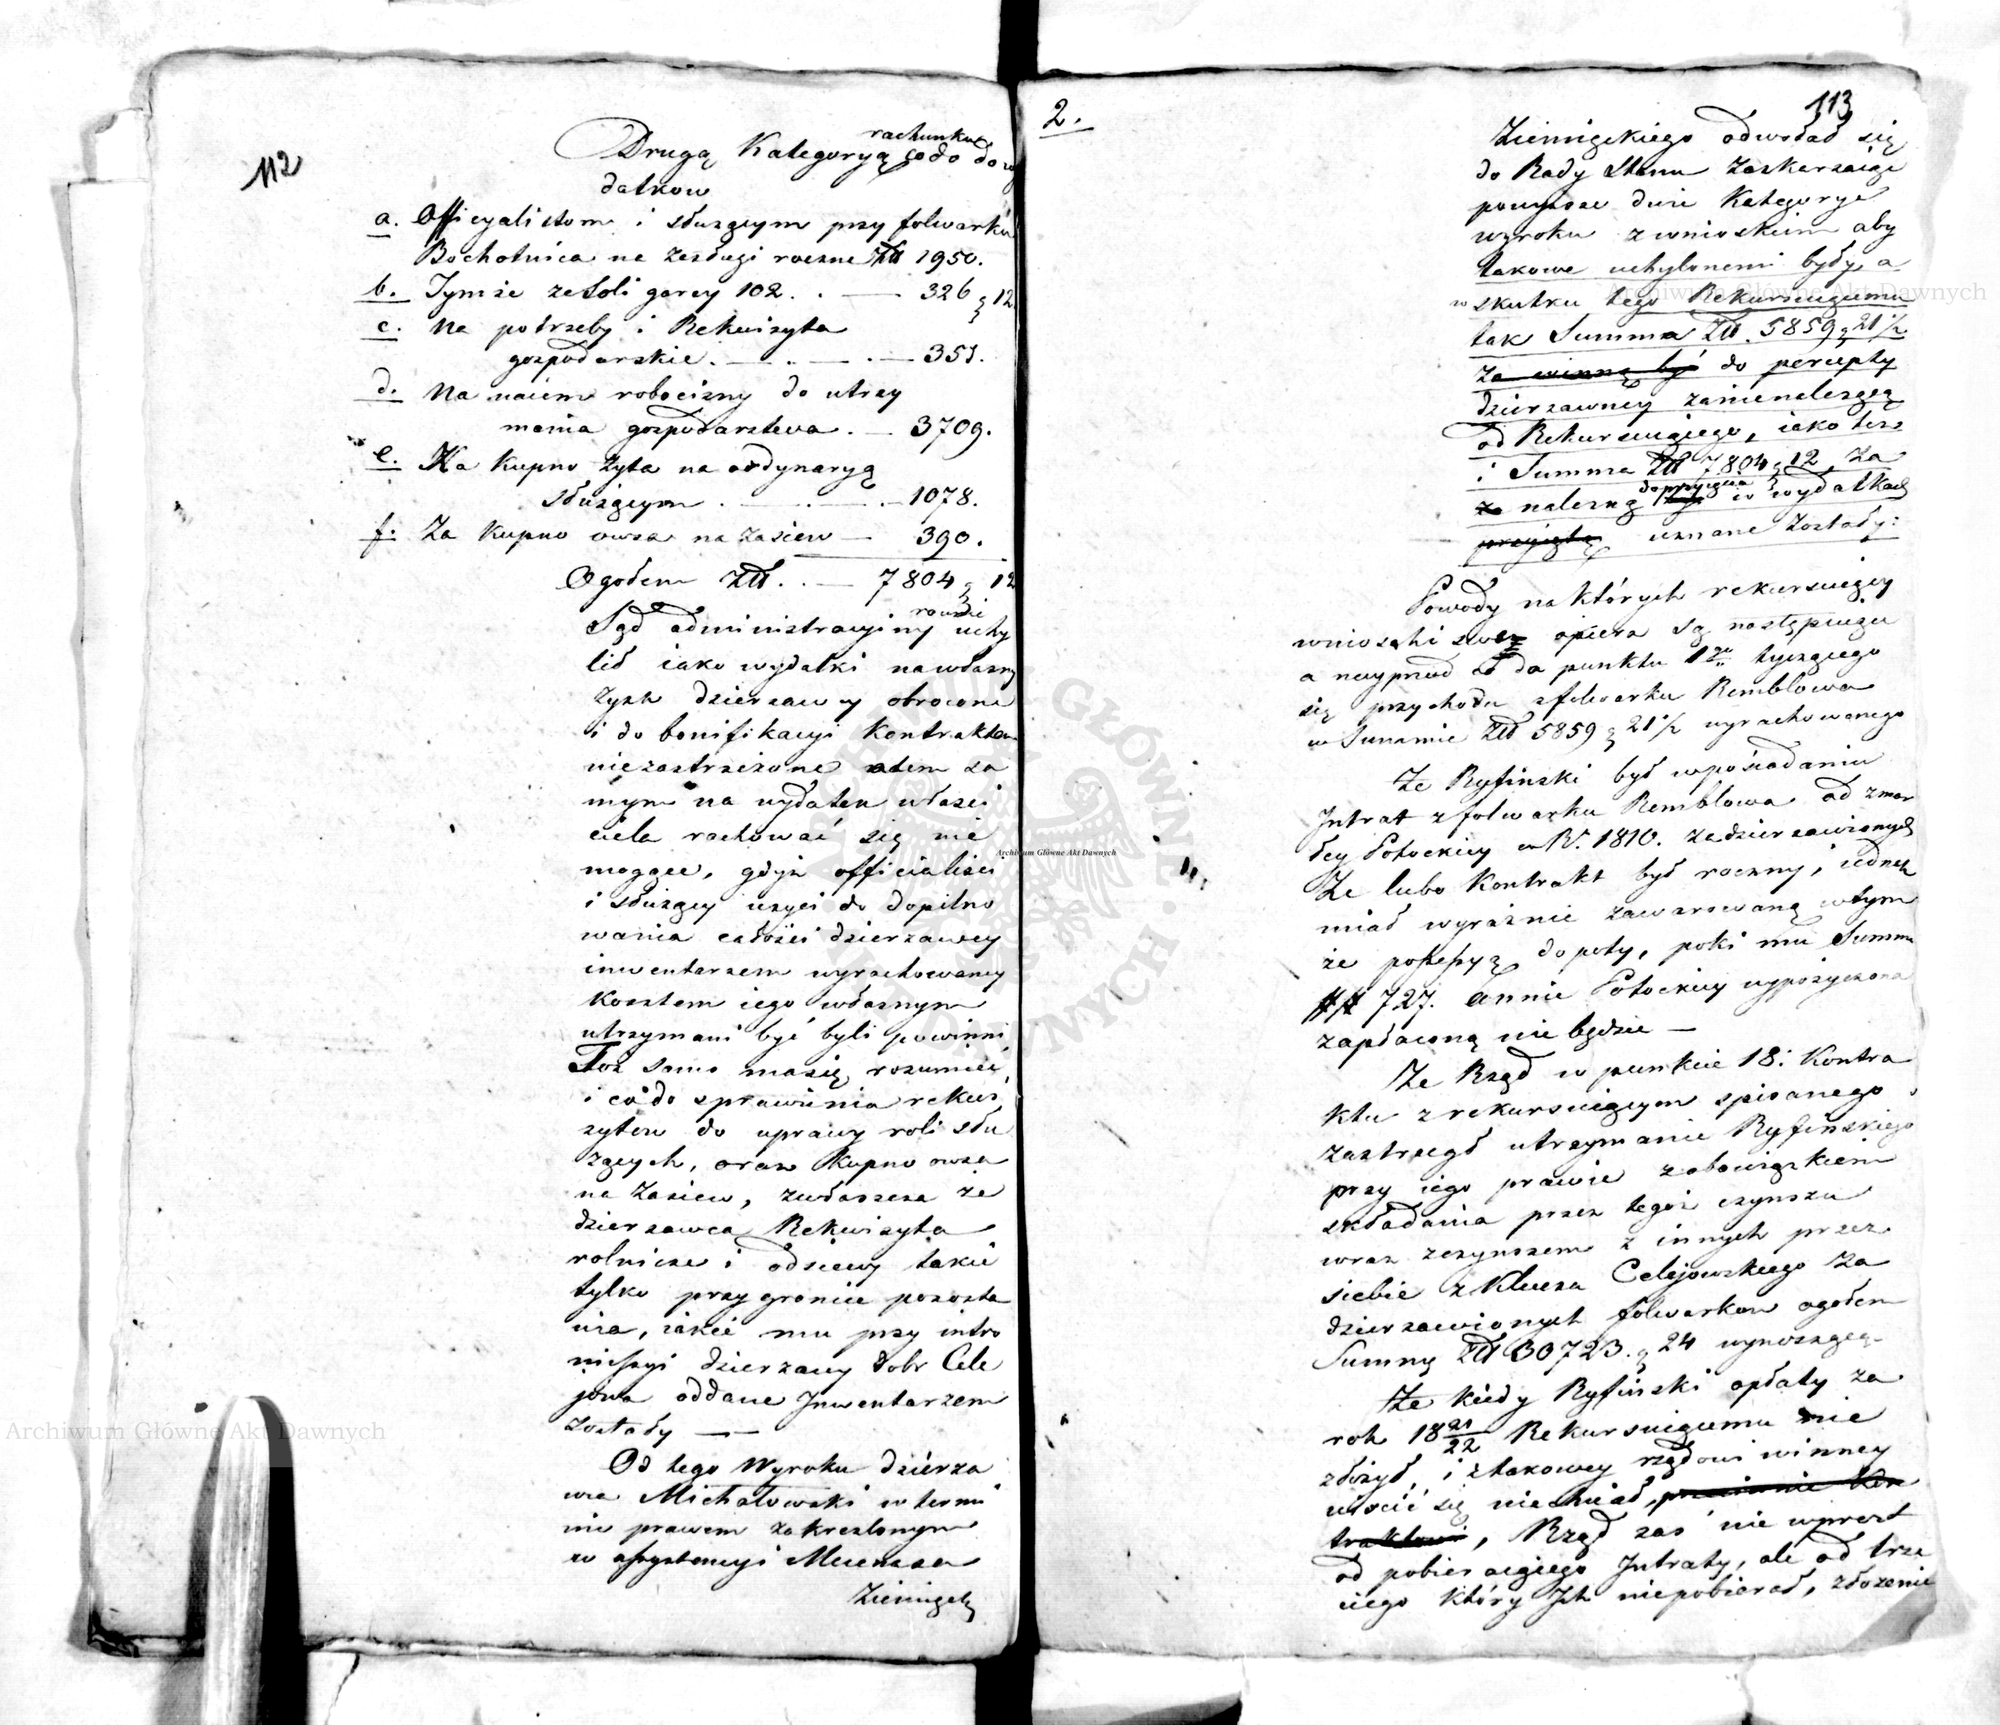 112
Drugą Kategoryą rachunku co do do wy
datkow
a. Officyalistom i służącym przy folwarku
Bochotnica na zasługi roczne Złł 1950.
b. Tymże ze soli garcy 102. . — 326 g 12
c. Na potrzeby i Rekwizyta
gospodarskie. — . — . — 351.
d. Na naiem robocizny do utrzy
mania gospodarstwa . — 3709.
e. Na kupno żyta na ordynaryą
służącym . — . — . — 1078.
f. Za kupno owsa na zasiew — 390.
Ogołem Złł. . — 7804 g 12
Sąd administracyiny rownie uchy
lił iako wydatki na własny
zysk dzierzawcy obrocone
i do bonifikacyi Kontraktem
niezastrzeżone a tem sa
mym na wydatek właści
ciela rachować się nie
mogące, gdyż officialiści
i służący użyci do dopilno
wania całości dzierzawcy
inwentarzem wyrachowaney
kosztem iego własnym
utrzymani być byli powinni
Toż samo ma się rozumieć,
i co do sprawienia rekwi
zytow do uprawy roli słu
żących, oraz kupna owsa
na zasiew, zwłaszcza że
dzierzawca Rekwizyta
rolnicze i odsiewy takie
tylko przy gronice pozosta
wia, iakie mu przy intro
missyi dzierzawy dobr Cele
jowa oddane Inwentarzem
zostały —
Od tego Wyroku dzierża
wca Michałowski w termi
nie prawem zakreslonym
w assystencyi Mecenasa
Ziemięck
2.
113
Ziemięckiego odwołał się
do Rady Stanu zaskarzaiąc
powyższe dwie Kategorye
wyroku z wnioskiem aby
takowe uchylonemi były, a
w skutku tego Rekursuiącemu
tak Summa Złł. 5859 g 21 1/2
za winną być do percepty
dzierzawney za nienalezącą
od Rekursuiącego, iako też
i Summa Złł 7804 g 12 za
za nalezną w wydatkach
przyięta uznane zostały:
Powody na których rekursuiący
wnioski swe opiera są następuiące
a nayprzod do punktu 1go tyczącego
się przychodu z folwarku Remblowa
w Summie Złł 5859 g 21 1/2 wyrachowanego
Że Ryfinski był w posiadaniu
Intrat z folwarku Remblowa od zmar
łey Potockiey w R. 1810. zadzierzawionych
Że lubo Kontrakt był roczny, iednak
miał wyraźnie zawarowaną w tym
że possessyą dopoty, poki mu Summa
## 727. Annie Potockiey wypożyczona
zapłaconą nie będzie —
Że Rząd w punkcie 18: Kontra
ktu z rekursuiącym spisanego
zastrzegł utrzymanie Ryfinskiego
przy iego prawie z obowiązkiem
składania przez tegoż czynszu
wraz z czynszem z innych przez
siebie z Klucza Celejowskiego za
dzierzawionych folwarkow ogołem
Summę Złł 30723. g 24 wynoszącą
Że kiedy Ryfiński opłaty za
rok 18 21/22 Rekursuiącemu nie
złożył, i z takowey rządowi winney
uiscić się nie chciał, przeciwnie Kon
traktowi, Rząd zaś nie wprost
od pobieraiącego Intraty, ale od trze
ciego który Ich niepobierał, złożenie
Archiwum Główne Akt Dawnych
Archiwum Główne Akt Dawnych
Archiwum Główne Akt Dawnych